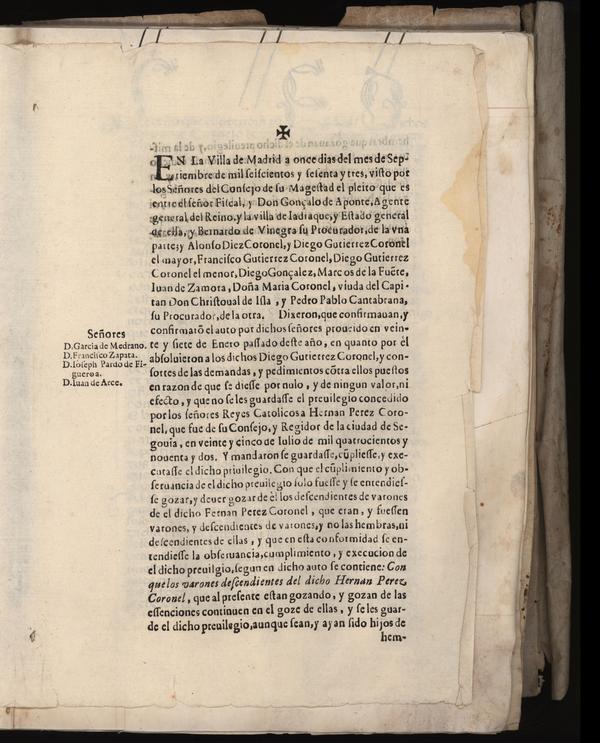 ✠
EN La Villa de Madrid a once dias del mes de Sep-
tiembre de mil seiscientos y sesenta y tres, visto por
los Señores del Consejo de su Magestad el pleito que es
entre el señor Fiscal, y Don Gonçalo de Aponte, Agente
general del Reino, y la villa de Iadraque, y Estado general
de ella, y Bernardo de Vinegra su Procurador, de la vna
parte; y Alonso Diez Coronel, y Diego Gutierrez Coronel
el mayor, Francisco Gutierrez Coronel, Diego Gutierrez
Coronel el menor, Diego Gonçalez, Marcos de la Fuẽte,
Iuan de Zamora, Doña Maria Coronel, viuda del Capi-
tan Don Christoual de Isla, y Pedro Pablo Cantabrana,
su Procurador, de la otra. Dixeron, que confirmauan, y
confirmarõ el auto por dichos señores proueido en vein-
te y siete de Enero passado deste año, en quanto por èl
absoluieron a los dichos Diego Gutierrez Coronel, y con-
sortes de las demandas, y pedimientos cõtra ellos puestos
en razon de que se diesse por nulo, y de ningun valor, ni
efecto, y que no se les guardasse el preuilegio concedido
por los señores Reyes Catolicos a Hernan Perez Coro-
nel, que fue de su Consejo, y Regidor de la ciudad de Se-
gouia, en veinte y cinco de Iulio de mil quatrocientos y
nouenta y dos. Y mandaron se guardasse, cũpliesse, y exe-
cutasse el dicho priuilegio. Con que el cũplimiento y ob-
seruancia de el dicho preuilegio solo fuesse y se entendies-
se gozar, y deuer gozar de èl los descendientes de varones
de el dicho Fernan Perez Coronel, que eran, y fuessen
varones, y descendientes de varones, y no las hembras, ni
descendientes de ellas, y que en esta conformidad se en-
tendiesse la obseruancia, cumplimiento, y execucion de
el dicho preuilgio, segun en dicho auto se contiene: Con
que los varones descendientes del dicho Hernan Perez
Coronel, que al presente estan gozando, y gozan de las
essenciones continuen en el goze de ellas, y se les guar-
de el dicho preuilegio, aunque sean, y ayan sido hijos de
hem-
Señores
D. Garcia de Medrano.
D. Francisco Zapata.
D. Ioseph Pardo de Fi-
gueroa.
D. Iuan de Arce.